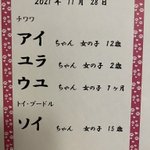 2021年 11月 28日
チワワ
アイ ちゃん 女の子 12歳
ユラ ちゃん 女の子 2歳
ウユ ちゃん 女の子 7ヶ月
トイ・プードル
ソイ ちゃん 女の子 15歳